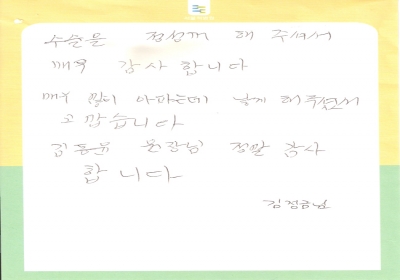 수술을 정성껏 해 주셔서
매우 감사 합니다
매우 많이 아파는데 낳게 해주셔서
고맙습니다
김동윤 원장님 정말 감사
합니다
김점금님